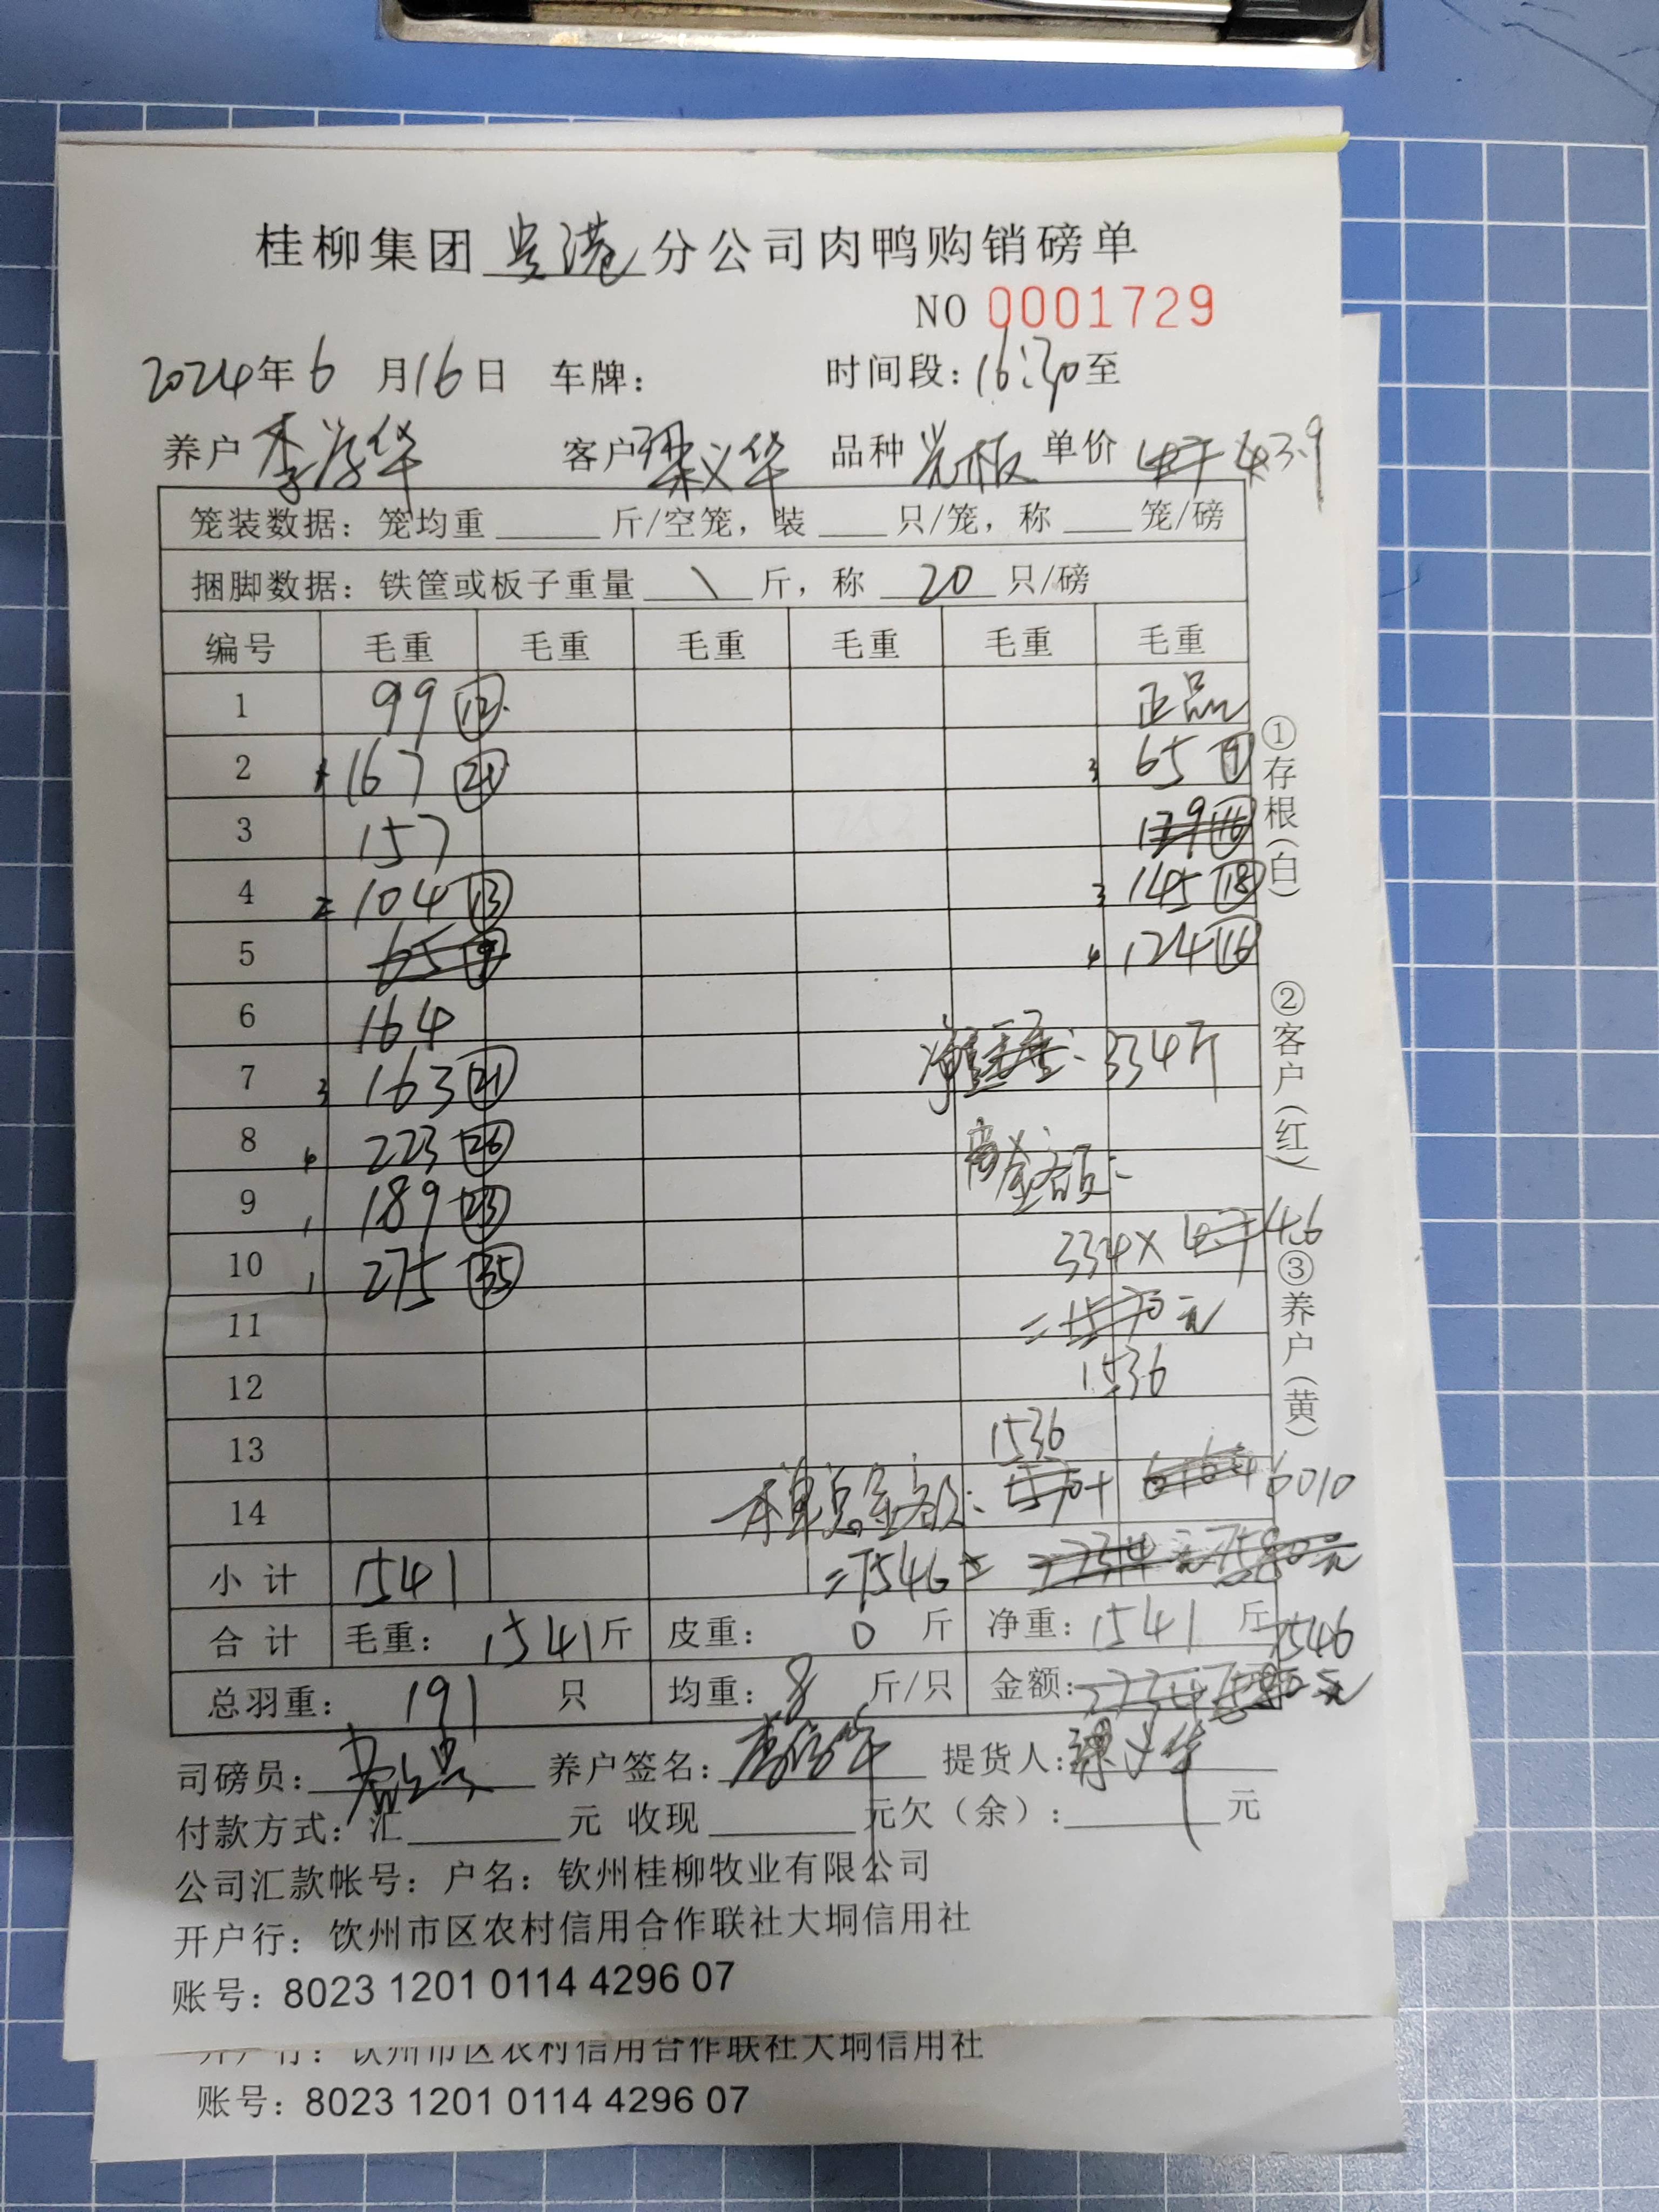 桂柳集团 贵港 分公司肉鸭购销磅单
NO 0001729
2024年6月16日 车牌: 时间段:16:30至
养户 李华 客户 梁义华 品种 光板 单价 4.7 4 3.9
笼装数据: 笼均重 斤/空笼, 装 只/笼, 称 笼/磅
捆脚数据: 铁筐或板子重量 \ 斤, 称 20 只/磅
编号 毛重 毛重 毛重 毛重 毛重 毛重
1 99 12 正品
2 167 21 3 65 9
3 157 129 16
4 2 104 13 3 145 18
5 65 9 4 124 16
6 164
7 3 163 21 净重: 334斤
8 4 223 26 金额:
9 1 189 23 334× 4.7 4.6
10 1 275 35
11 =1570元
12 1536
13 1536
14 本单总金额: 1570+ 6164 6010
小计 1541 =7546 = 7734元 7580元
合计 毛重: 1541斤 皮重: 0 斤 净重: 1541 斤 7546
总羽重: 191 只 均重: 8 斤/只 金额: 7734 7580元
司磅员: 养户签名: 提货人: 梁义华
付款方式: 汇 元 收现 元欠(余): 元
公司汇款帐号: 户名: 钦州桂柳牧业有限公司
开户行: 钦州市区农村信用合作联社大垌信用社
账号: 8023 1201 0114 4296 07
①存根(白) ②客户(红) ③养户(黄)
开户行: 钦州市区农村信用合作联社大垌信用社
账号: 8023 1201 0114 4296 07